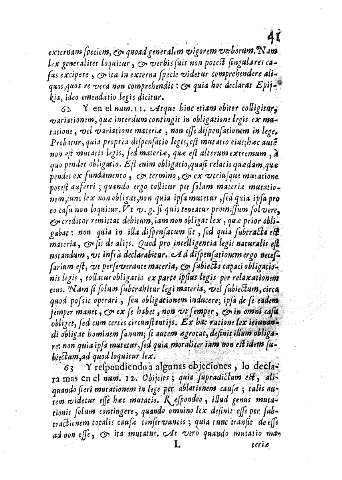 41
externam speciem, & quoad generalem vigorem verborum. Nam
lex generaliter loquitur, & verbis suis non potest singulares ca-
sus excipere, & ita in externa specie videtur comprehendere ali-
quos, quos re vera non comprehendit: & quia hoc declarat Epij-
kia, ideo emendatio legis dicitur.
62 Y en el num. 11. Atque hinc etiam obiter colligitur,
variationem, que interdum contingit in obligatione legis ex mu-
tatione, vel variatione materiæ, non esse dispensationem in lege.
Probatur, quia propria dispensatio legis, est mutatio eius; hæc autē
non est mutatio legis, sed materiæ, quæ est alterum extremum, à
quo pendet obligatio. Est enim obligatio, quasi relatio quædam, quæ
pendet ex fundamento, & termino, & ex vtriusque mutatione
potest auferri; quando ergo tollitur per solam materiæ mutatio-
nem, tunc lex non obligat, non quia ipsa mutetur, sed quia ipsa pro
eo casu non loquitur. Vt v. g. si quis teneatur promissum solvere,
& creditor remittat debitum, iam non obligat lex, quæ prior obli-
gabat: non quia in illa dispensatum sit, sed quia subtracta est
materia, & sic de alijs. Quod pro intelligentia legis naturalis est
notandum, vt infrà declarabitur. Ad dispensationem ergo neces-
sarium est, vt perseverante materia, & subiecto capaci obligatio-
nis legis, tollatur obligatio ex parte ipsius legis per relaxationem
eius. Nam si solum subtrahitur legi materia, vel subiectum, circa
quod possit operari, seu obligationem inducere, ipsa de se eadem
semper manet, & ex se habet, non vt semper, & in omni casu
obliget, sed cum certis circunstantijs. Ex hac ratione lex ieiunan-
di obligat hominem sanum; si autem ægrotat, desinit illum obliga-
re: non quia ipsa mutetur, sed quia moraliter iam non est idem su-
biectum, ad quod loquitur lex.
63 Y respondiendo à algunas objecciones, lo decla-
ra mas en el num. 12. Obijcies; quia supradictum est, ali-
quando fieri mutationem in lege per ablationem causæ; talis au-
tem videtur esse hæc mutatio. Respondeo, illud genus muta-
tionis solum contingere, quando omnino lex desinit esse per sub-
tractionem totalis causæ conservantis; quia tunc transit de esse
ad non esse, & ita mutatur. At verò quando mutatio ma-
L teriæ